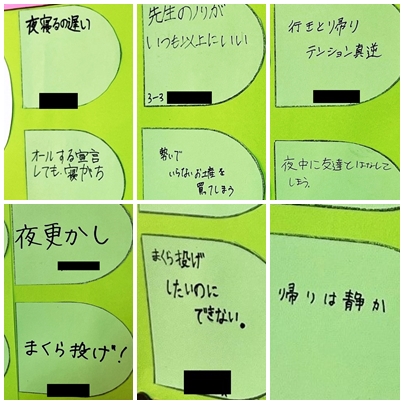 夜寝るの遅い
先生のノリが
いつも以上にいい
3-3
行きと帰り
テンション真逆
オールする宣言
しても寝がち
勢いで
いらないお土産を
買ってしまう
夜中に友達とはなして
しまう。
夜更かし
まくら投げ!
まくら投げ
したいのに
できない。
帰りは静か